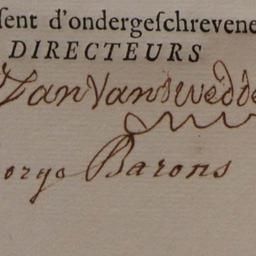 sent d'ondergeſchrevene
DIRECTEURS
Jan Van dwedde
orge Barons